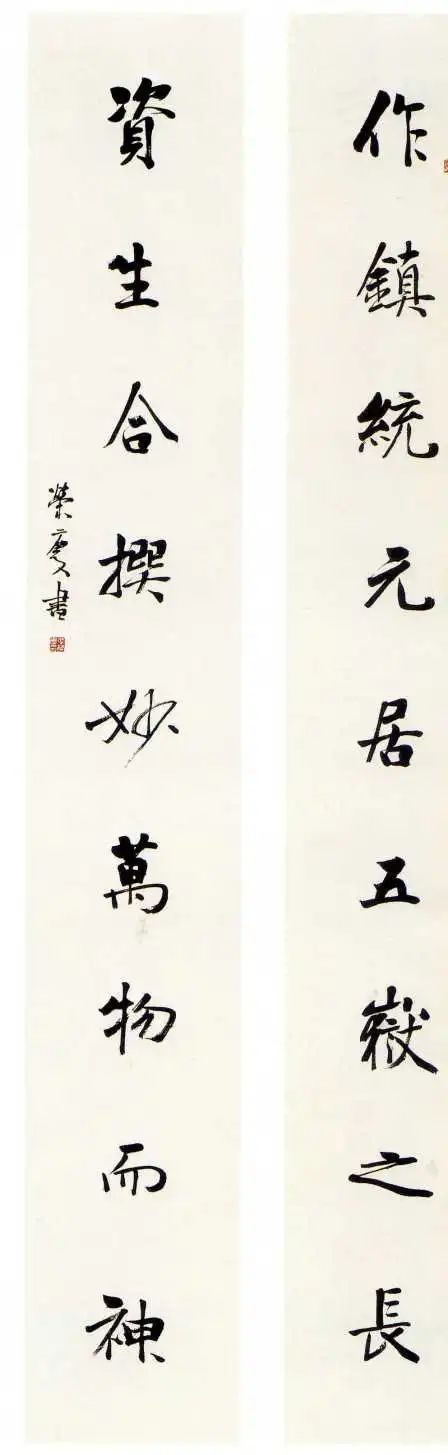 作鎮統元居五嶽之長
資生合撰妙萬物而神
榮慶書